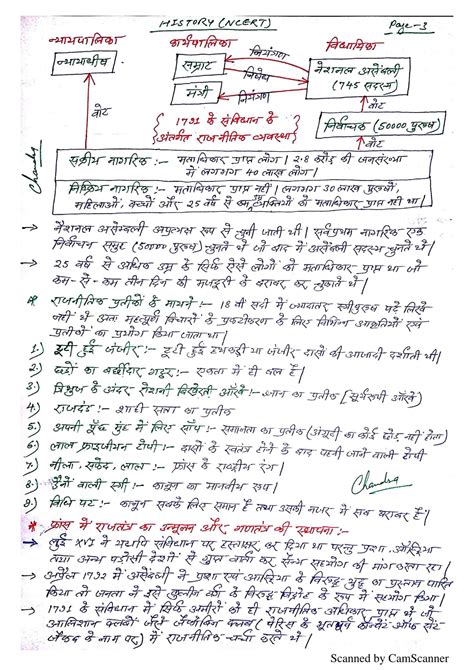 HISTORY (NCERT) Page-3
न्यायपालिका कार्यपालिका विधायिका
न्यायाधीश सम्राट नियंत्रण नेशनल असेंबली
मंत्री निषेध (745 सदस्य)
नियंत्रण
वोट वोट
1791 के संविधान के निर्वाचक (50000 पुरुष)
अंतर्गत राजनीतिक व्यवस्था वोट
Chandra
सक्रीय नागरिक :- मताधिकार प्राप्त लोग। 2.8 करोड़ की जनसंख्या
में लगभग 40 लाख लोग।
निष्क्रिय नागरिक :- मताधिकार प्राप्त नहीं। लगभग 30 लाख पुरुषों,
महिलाओं, बच्चों और 25 वर्ष से कम व्यक्तियों को मताधिकार प्राप्त नहीं था।
→ नेशनल असेम्बली अप्रत्यक्ष रूप से चुनी जाती थी। सर्वप्रथम नागरिक एक
निर्वाचन समूह (50000 पुरुष) चुनते थे जो बाद में असेंबली सदस्य चुनते थे।
→ 25 वर्ष से अधिक उम्र के सिर्फ ऐसे लोगों को मताधिकार प्राप्त था जो
कम-से-कम तीन दिन की मजदूरी के बराबर कर चुकाते थे।
* राजनीतिक प्रतीकों के मायने :- 18 वीं सदी में ज्यादातर स्त्री पुरुष पढ़े लिखे
नहीं थे अतः महत्वपूर्ण विचारों के लिए विभिन्न आकृतियों एवं
प्रतीकों का प्रयोग किया जाता था।
1.) टूटी हुई जंजीर :- टूटी हुई हथकड़ी या जंजीर दासों की आजादी दर्शाती थी।
2.) छड़ों का बर्छीदार गट्ठर :- एकता में ही बल है।
3.) त्रिभुज के अंदर रोशनी बिखेरती आँख :- ज्ञान का प्रतीक (सूर्यरूपी आँख)
4.) राजदंड :- शाही सत्ता का प्रतीक
5.) अपनी पूँछ मुंह में लिए साँप :- समानता का प्रतीक (अंगूठी का कोई छोर नहीं होता)
6.) लाल फ्राइजियन टोपी :- दासों के स्वतंत्र होने के बाद पहनी जाने वाली टोपी
7.) नीला, सफेद, लाल :- फ्रांस के राष्ट्रीय रंग।
8.) डैनों वाली स्त्री :- कानून का मानवीय रूप। Chandra
9.) विधि पट :- कानून सबके लिए समान है तथा उसकी नजर में सब बराबर हैं।
* फ्रांस में राजतंत्र का उन्मूलन और गणतंत्र की स्थापना :-
→ लुई XVI ने यद्यपि संविधान पर हस्ताक्षर कर दिया था परन्तु प्रशा, ऑस्ट्रिया
तथा अन्य पड़ोसी देशों से गुप्त वार्ता कर सैन्य सहयोग की मांग करता रहा।
→ अप्रैल 1792 में असेंबली ने प्रशा एवं आस्ट्रिया के विरुद्ध युद्ध का प्रस्ताव पारित
किया तो जनता ने इसे यूरोपीय के विरुद्ध के रूप में किया।
→ 1791 के संविधान में सिर्फ अमीरों को ही राजनीतिक अधिकार प्राप्त थे जो
क्लबों जैसे जैकोबिन क्लब (पेरिस के भूतपूर्व कॉन्वेंट ऑफ सेंट
जैकब के नाम पर) में राजनीतिक-चर्चा करते थे।
Scanned by CamScanner